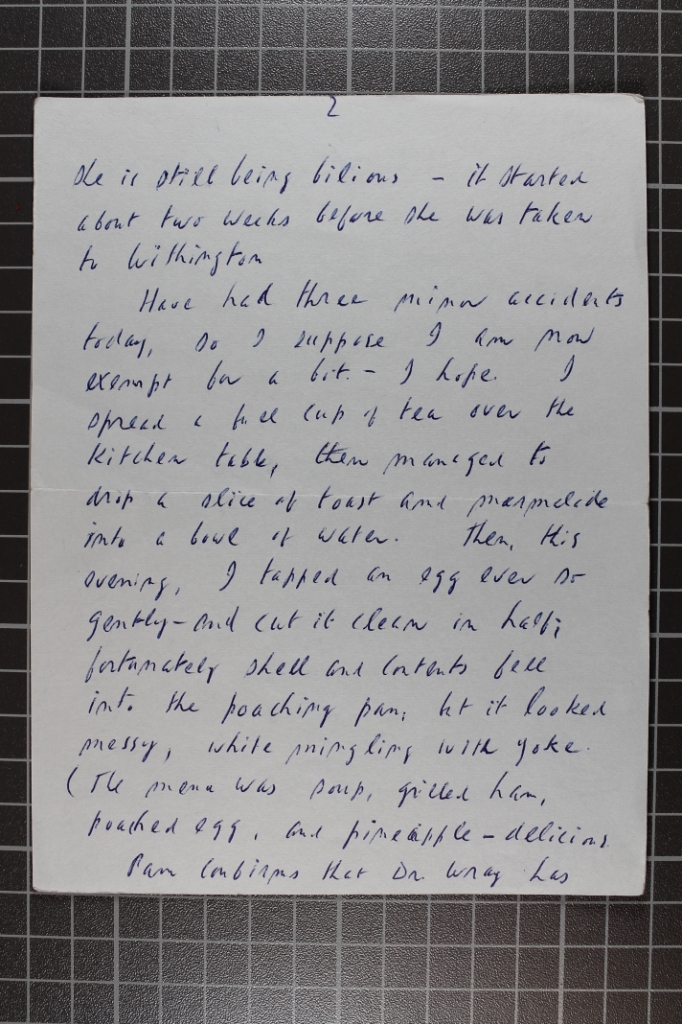 2
She is still being bilious - it started
about two weeks before she was taken
to Withington
Have had three minor accidents
today, so I suppose I am now
exempt for a bit. - I hope. I
spread a full cup of tea over the
kitchen table, then managed to
drop a slice of toast and marmalade
into a bowl of water. Then, this
evening, I tapped an egg ever so
gently - and cut it clean in half;
fortunately shell and contents fell
into the poaching pan, but it looked
messy, white mingling with yoke.
(The menu was soup, grilled ham,
poached egg, and pineapple - delicious.
Pam confirms that Dr Wray has